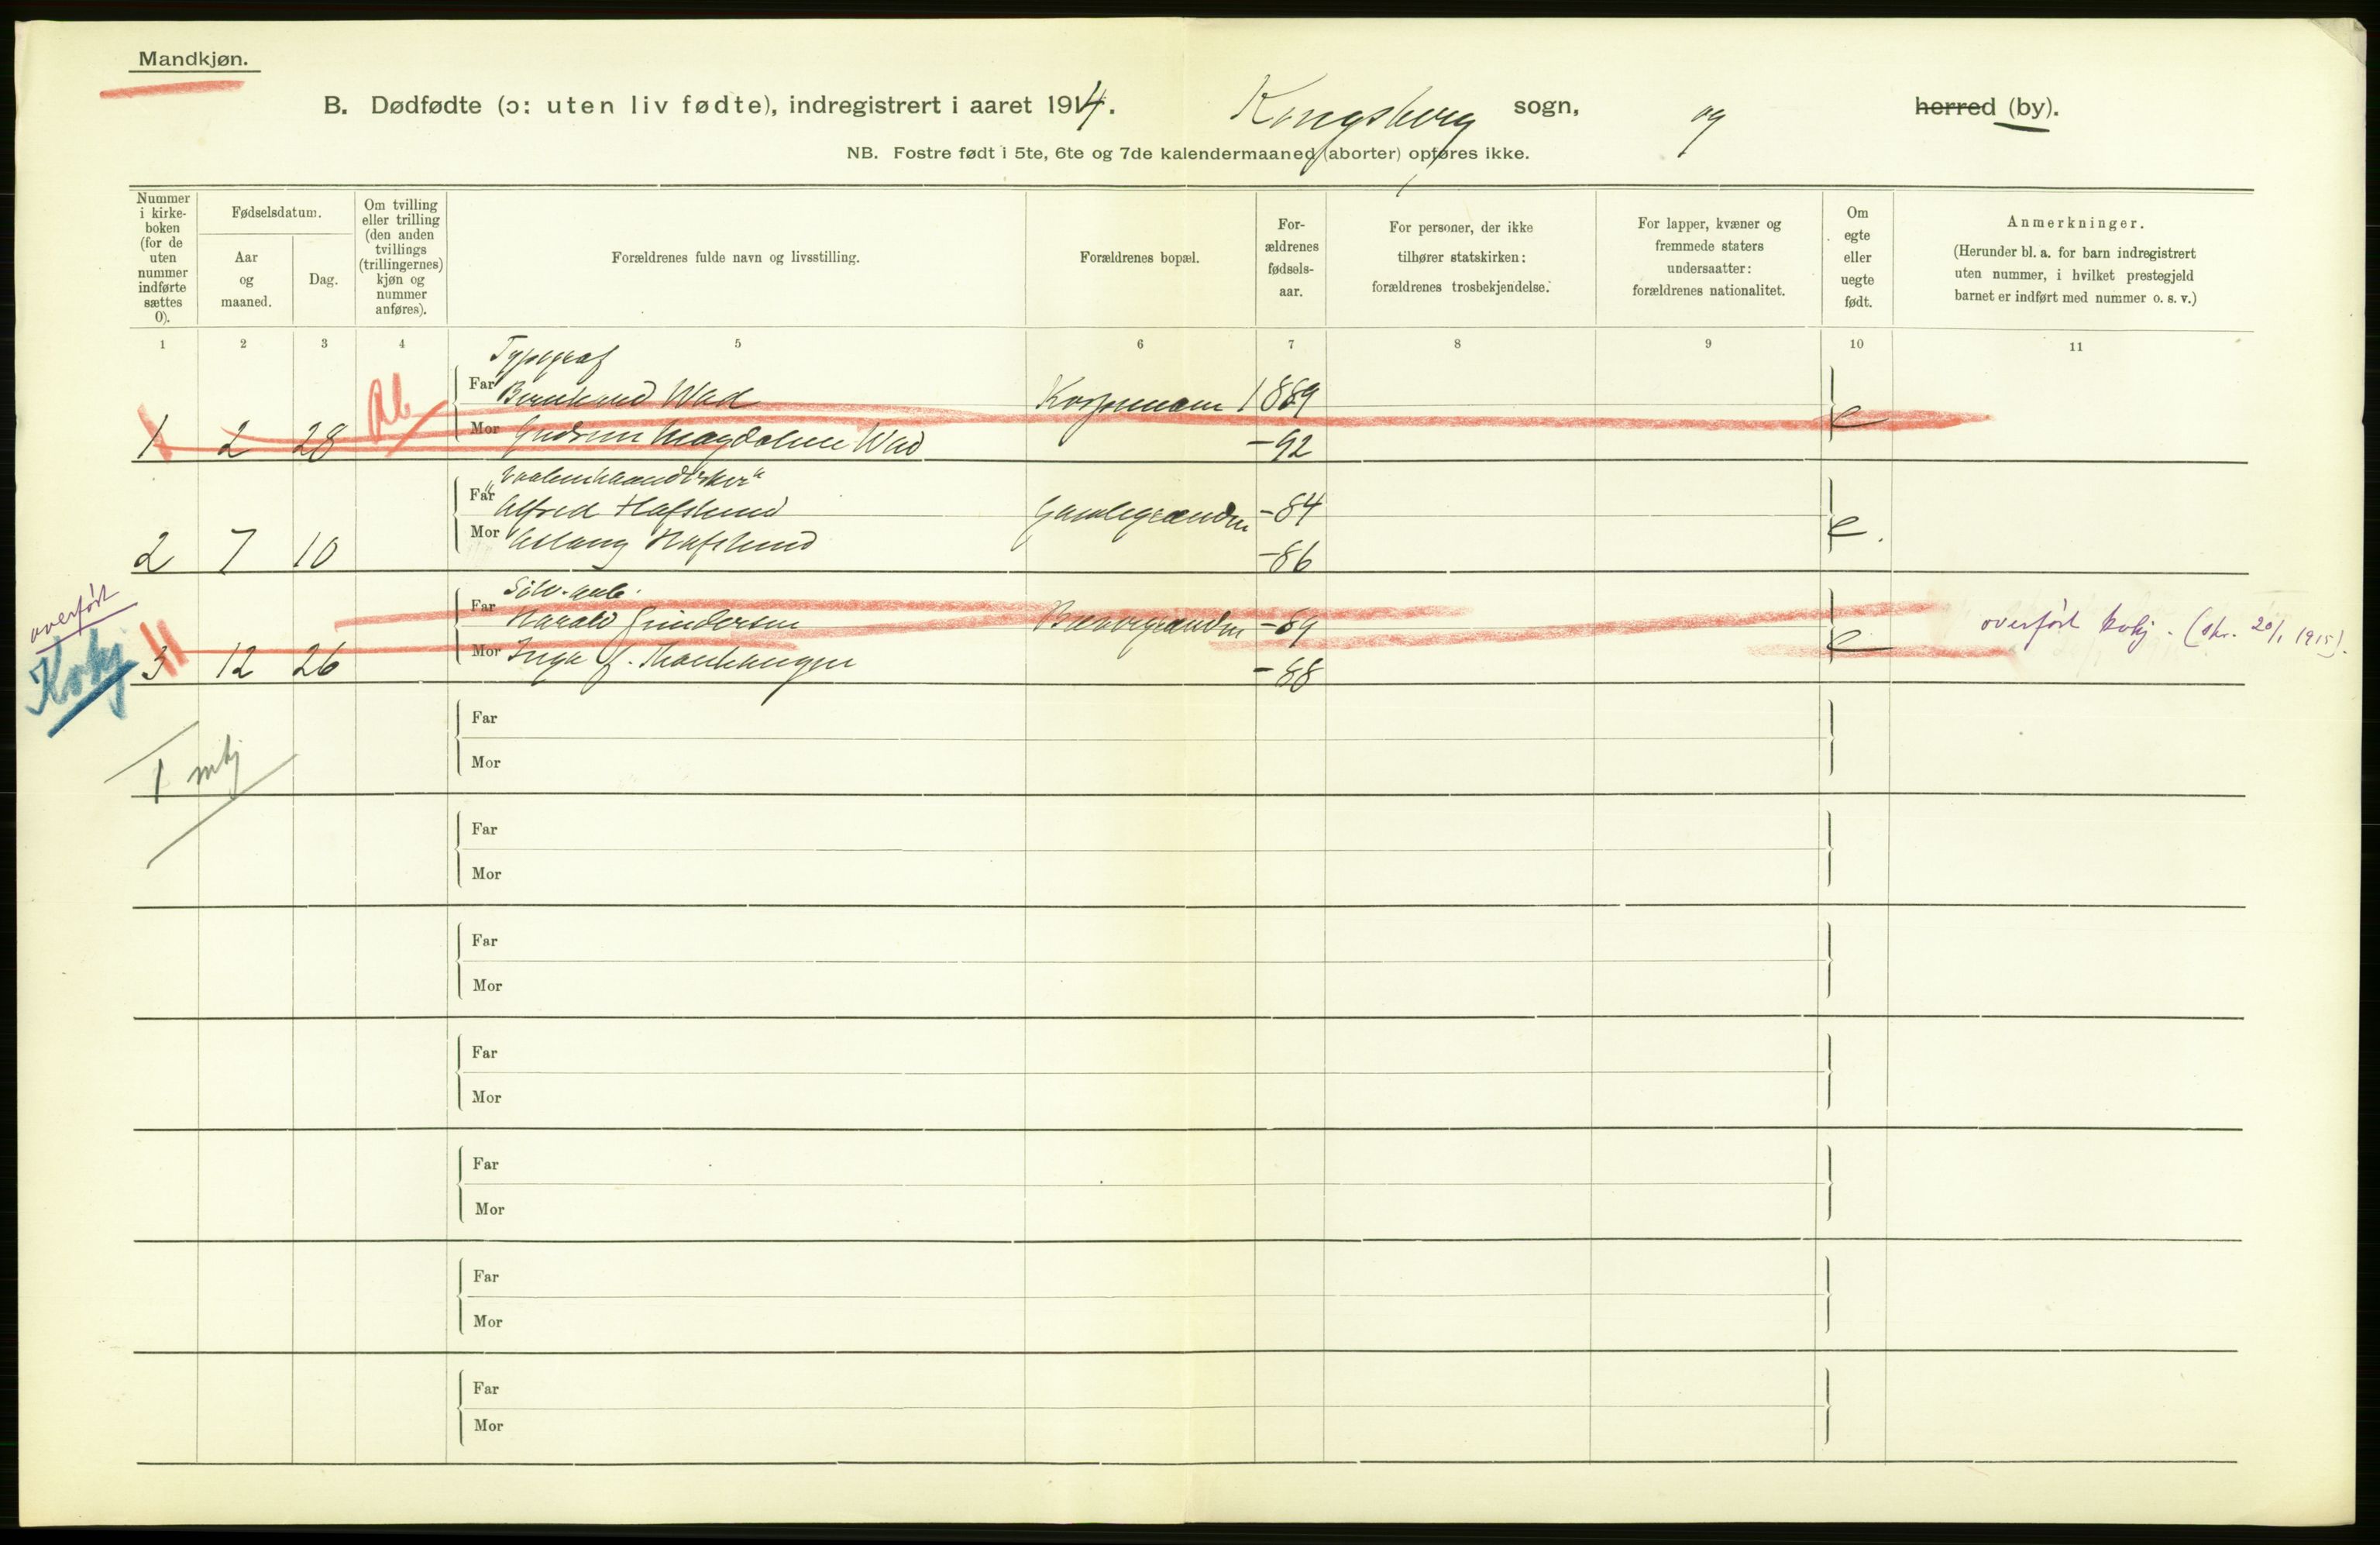 Mandkjøn.
B. Dødfødte (ɔ: uten liv fødte), indregistrert i aaret 1914. Kongsberg sogn, og herred (by).
NB. Fostre født i 5te, 6te og 7de kalendermaaned (aborter) opføres ikke.
Nummer i kirke-boken (for de uten nummer indførte sættes 0).
Fødselsdatum.
Aar og maaned.
Dag.
Om tvilling eller trilling (den anden tvillings (trillingernes) kjøn og nummer anføres).
Forældrenes fulde navn og livsstilling.
Forældrenes bopæl.
For-ældrenes fødsels-aar.
For personer, der ikke tilhører statskirken: forældrenes trosbekjendelse.
For lapper, kvæner og fremmede staters undersaatter: forældrenes nationalitet.
Om egte eller uegte født.
Anmerkninger.
(Herunder bl. a. for barn indregistrert uten nummer, i hvilket prestegjeld barnet er indført med nummer o. s. v.)
1 2 3 4 5 6 7 8 9 10 11
Typograf
Far Bernhard Wad 1889
1 2 28 Ab Mor Gudrun Magdalene Wad -92 e
Far Alfred Hafslund -84
2 7 10 Mor Aslaug Hafslund -86 e.
overført
Sølv. arb.
Far Harald Gundersen -89
Kvkj 3 12 26 Mor Inga f. -88 e overført kvkj. (skr. 20/1 1915).
Far
1 mkj
Mor
Far
Mor
Far
Mor
Far
Mor
Far
Mor
Far
Mor
Far
Mor